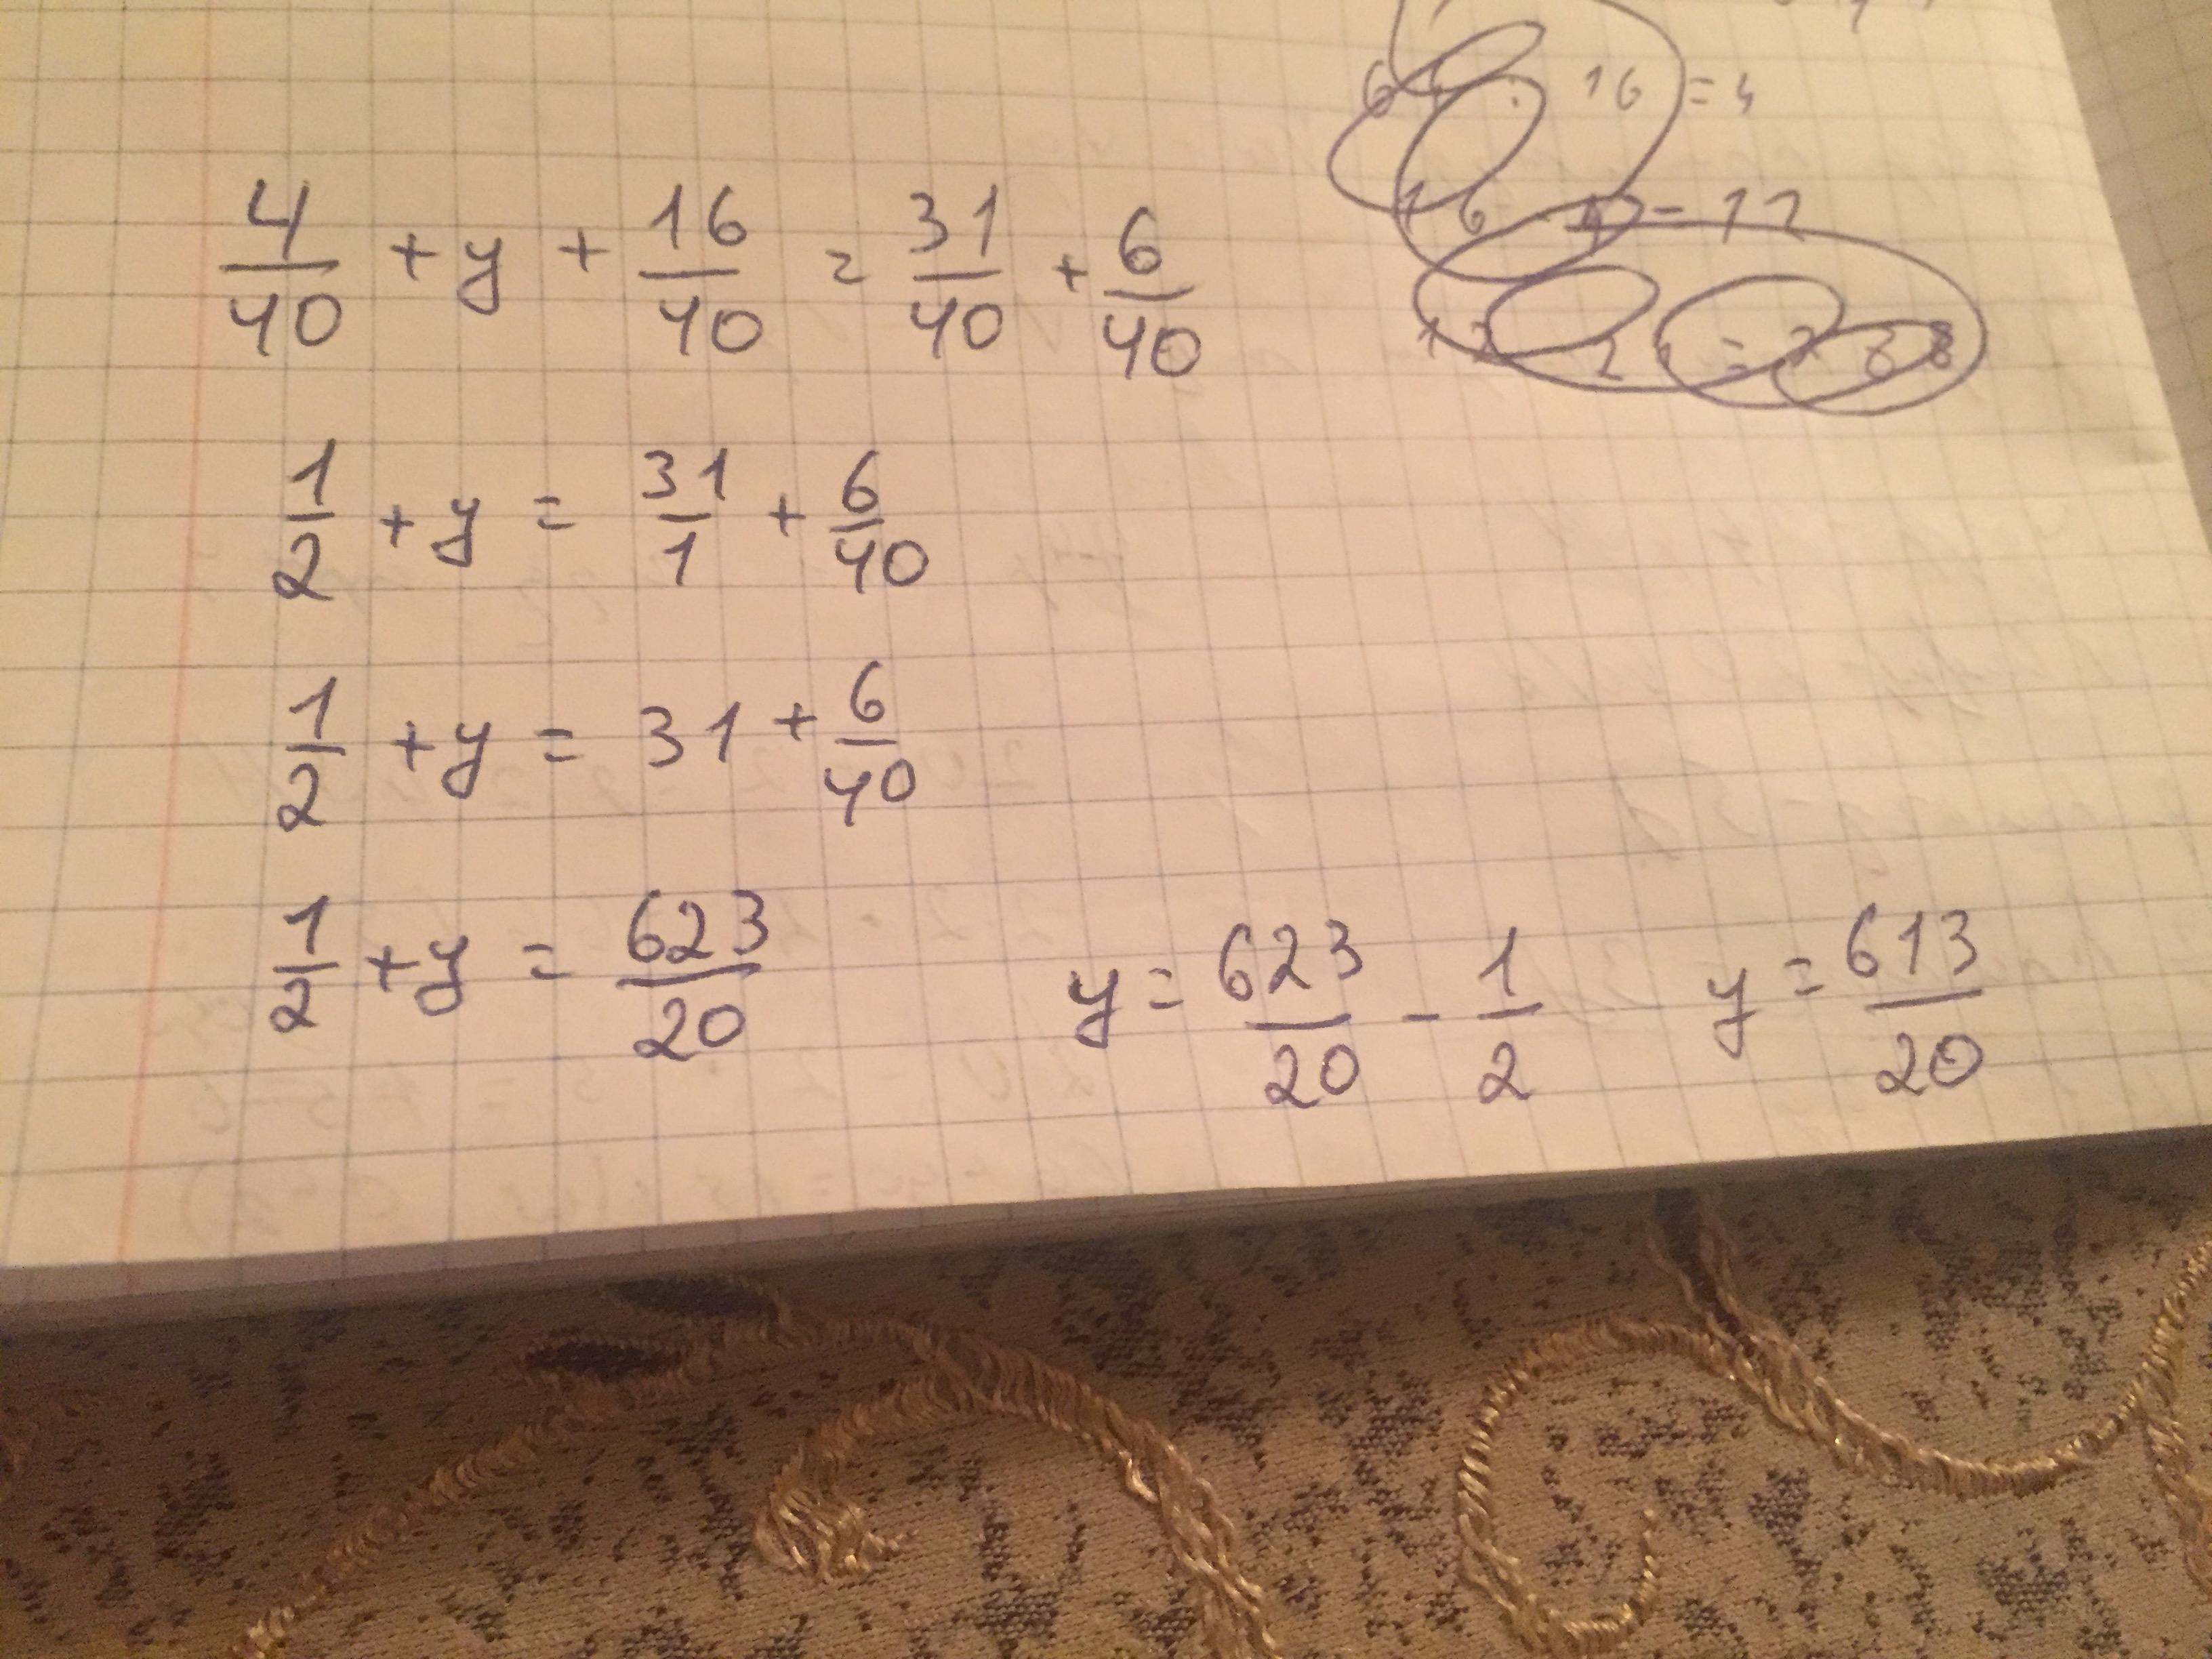 4/40 + y + 16/40 = 31/40 + 6/40
1/2 + y = 31/1 + 6/40
1/2 + y = 31 + 6/40
1/2 + y = 623/20 y = 623/20 - 1/2 y = 613/20